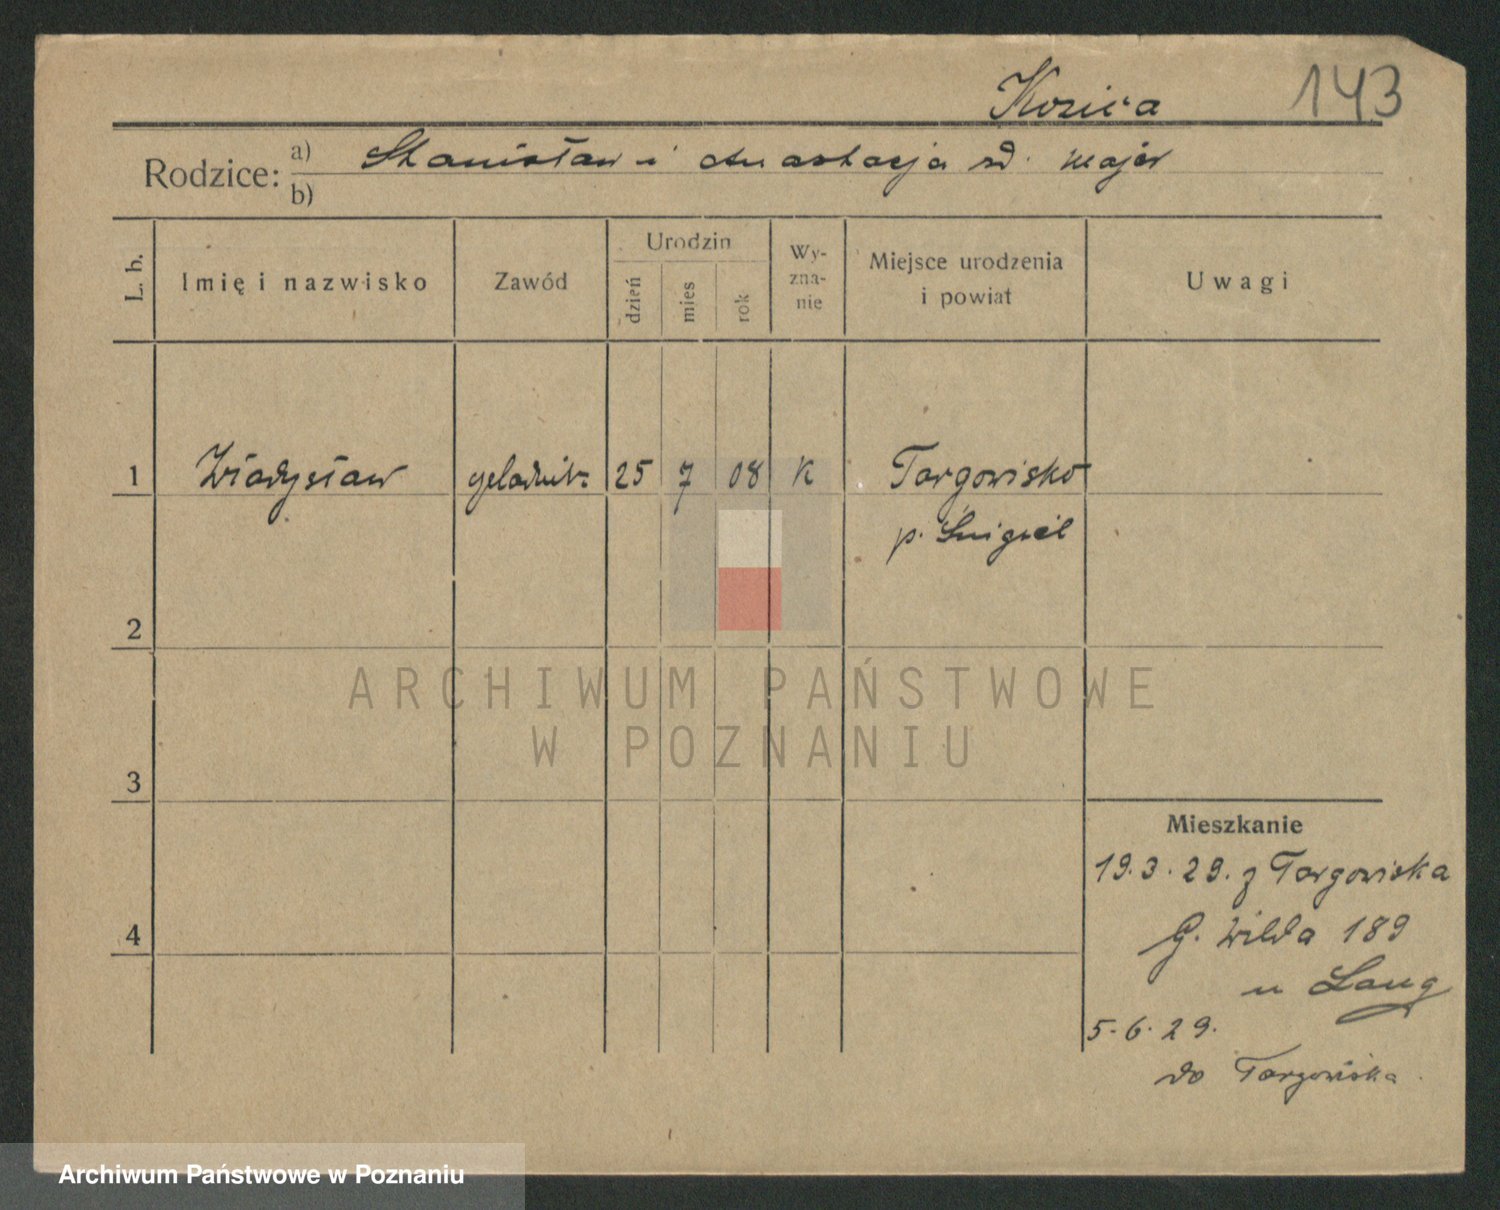 Kozica 143
Rodzice: a) Stanisław i Anastazja zd. Majer
b)
L. b. Imię i nazwisko Zawód Urodzin dzień mies rok Wy-zna-nie Miejsce urodzenia i powiat Uwagi
1 Władysław czeladnik 25 7 08 K Targowisko
p. Śmigiel
2
ARCHIWUM PAŃSTWOWE
W POZNANIU
3
Mieszkanie
19.3.29. z Targowiska
4 G. Wilda 189
u Lang
5.6.29.
do Targowiska
Archiwum Państwowe w Poznaniu